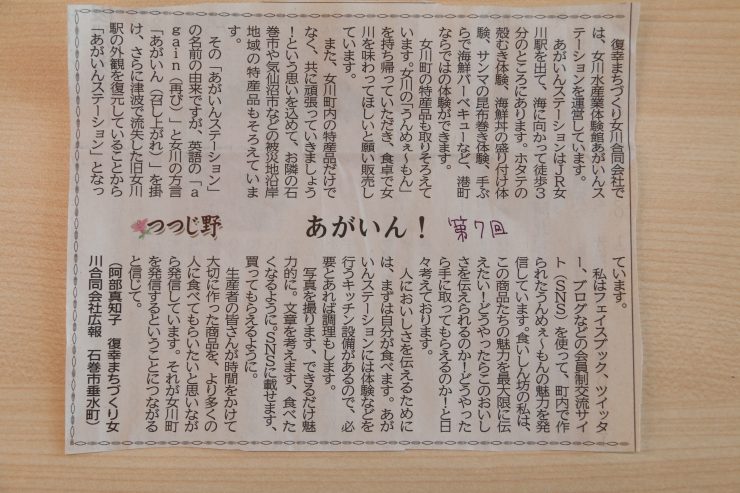 復幸まちづくり女川合同会社で
は、女川水産業体験館あがいんス
テーションを運営しています。
あがいんステーションはJR女
川駅を出て、海に向かって徒歩3
分のところにあります。ホタテの
殻むき体験、海鮮丼の盛り付け体
験、サンマの昆布巻き体験、手ぶ
らで海鮮バーベキューなど、港町
ならではの体験ができます。
女川町の特産品も取りそろえて
います。女川の「うんめぇ〜もん」
を持ち帰っていただき、食卓で女
川を味わってほしいと願い販売し
ています。
また、女川町内の特産品だけで
なく、共に頑張っていきましょう
!という思いを込めて、お隣の石
巻市や気仙沼市などの被災地沿岸
地域の特産品もそろえていま
す。
その「あがいんステーション」
の名前の由来ですが、英語の「a
gain(再び)」と女川の方言
「あがいん(召し上がれ)」を掛
け、さらに津波で流失した旧女川
駅の外観を復元していることから
「あがいんステーション」となっ
つつじ野
あがいん!
第7回
ています。
私はフェイスブック、ツイッタ
ー、ブログなどの会員制交流サイ
ト(SNS)を使って、町内で作
られたうんめぇ〜もんの魅力を発
信しています。食いしん坊の私は、
この商品たちの魅力を最大限に伝
えたい!どうやったらこのおいし
さを伝えられるのか!どうやった
ら手に取ってもらえるのか!と日
々考えております。
人においしさを伝えるために
は、まずは自分が食べます。あが
いんステーションには体験などを
行うキッチン設備があるので、必
要とあれば調理もします。
写真を撮ります、できるだけ魅
力的に。文章を考えます、食べた
くなるように。SNSに載せます、
買ってもらえるように。
生産者の皆さんが時間をかけて
大切に作った商品を、より多くの
人に食べてもらいたいと思いなが
ら発信しています。それが女川町
を発信するということにつながる
と信じて。
(阿部真知子 復幸まちづくり女
川合同会社広報 石巻市垂水町)